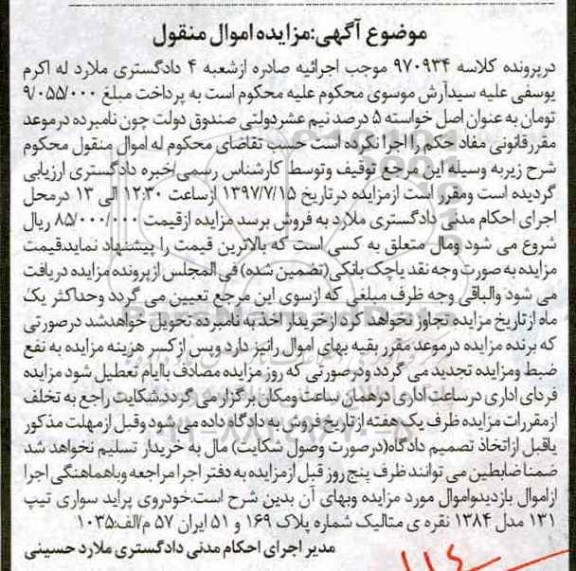 موضوع آگهی:مزایده اموال منقول
درپرونده کلاسه ۹۷۰۹۳۴ موجب اجرائیه صادره ازشعبه ۴ دادگستری ملارد له اکرم
یوسفی علیه سیدآرش موسوی محکوم علیه محکوم است به پرداخت مبلغ ۹/۰۵۵/۰۰۰
تومان به عنوان اصل خواسته ۵ درصد نیم عشردولتی صندوق دولت چون نامبرده درموعد
مقررقانونی مفاد حکم را اجرا نکرده است حسب تقاضای محکوم له اموال منقول محکوم
شرح زیربه وسیله این مرجع توقیف وتوسط کارشناس رسمی/خبره دادگستری ارزیابی
گردیده است ومقرر است ازمزایده درتاریخ ۱۳۹۷/۷/۱۵ ازساعت ۱۲:۳۰ الی ۱۳ درمحل
اجرای احکام مدنی دادگستری ملارد به فروش برسد مزایده ازقیمت ۸۵/۰۰۰/۰۰۰ ریال
شروع می شود ومال متعلق به کسی است که بالاترین قیمت را پیشنهاد نمایدقیمت
مزایده به صورت وجه نقد یاچک بانکی(تضمین شده) فی المجلس ازپرونده مزایده دریافت
می شود والباقی وجه ظرف مبلغی که ازسوی این مرجع تعیین می گردد وحداکثر یک
ماه ازتاریخ مزایده تجاوز نخواهد کرد ازخریدار اخذ به نامبرده تحویل خواهدشد درصورتی
که برنده مزایده درموعد مقرر بقیه بهای اموال رانیز دارد وپس ازکسر هزینه مزایده به نفع
ضبط ومزایده تجدید می گردد ودرصورتی که روز مزایده مصادف باایام تعطیل شود مزایده
فردای اداری درساعت اداری درهمان ساعت ومکان برگزار می گردد.شکایت راجع به تخلف
ازمقررات مزایده ظرف یک هفته از تاریخ فروش به دادگاه داده می شود وقبل ازمهلت مذکور
یاقبل ازاتخاذ تصمیم دادگاه(درصورت وصول شکایت) مال به خریدار تسلیم نخواهد شد
ضمنا ضابطین می توانند ظرف پنج روز قبل ازمزایده به دفتر اجرا مراجعه وباهماهنگی اجرا
ازاموال بازدیدواموال مورد مزایده وبهای آن بدین شرح است.خودروی پراید سواری تیپ
۱۳۱ مدل ۱۳۸۴ نقره ی متالیک شماره پلاک ۱۶۹ و ۵۱ ایران ۵۷ م/الف:۱۰۳۵
مدیر اجرای احکام مدنی دادگستری ملارد حسینی